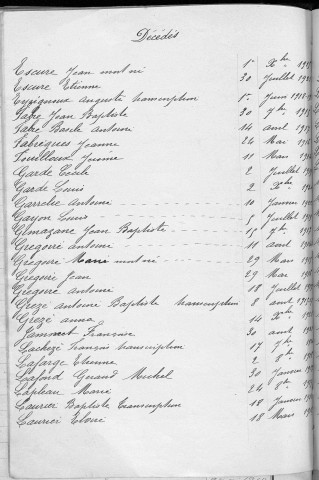 Décédés
Escure Jean mort né 1er Xbre 191
Escure Etienne 30 Juillet 191
Eyzigueux Auguste transcription 1er Juin 1918
Fabre Jean Baptiste 30 7bre 191
Fabre Basile Antoine 14 avril 191
Fabrègues Jeanne 24 Mai 191
Fouilloux Jeanne 11 Mars 191
Garde Cécile 2 Juillet 19
Garde Louis 2 Xbre 19
Garrelie Antoine 10 Janvier 19
Gayon Louis 5 Juillet 19
Jean Baptiste 15 7bre 19
Grégoire Antoine 11 avril 19
Grégoire Marie mort né 29 Mars 19
Grégoire Jean 29 Mai 19
Grégoire Antoine 18 Juillet 19
Grèze Antoine Baptiste transcription 8 avril
Grèze Anna 14 Xbre 19
Française 30 avril 19
François transcription 17 7bre
Lafarge Etienne 2 8bre
Lafond Michel 30 Janvier
Lapleau Marie 24 8bre
Laurier Baptiste transcription 18 Janvier
Laurier Elvire 18 Mars